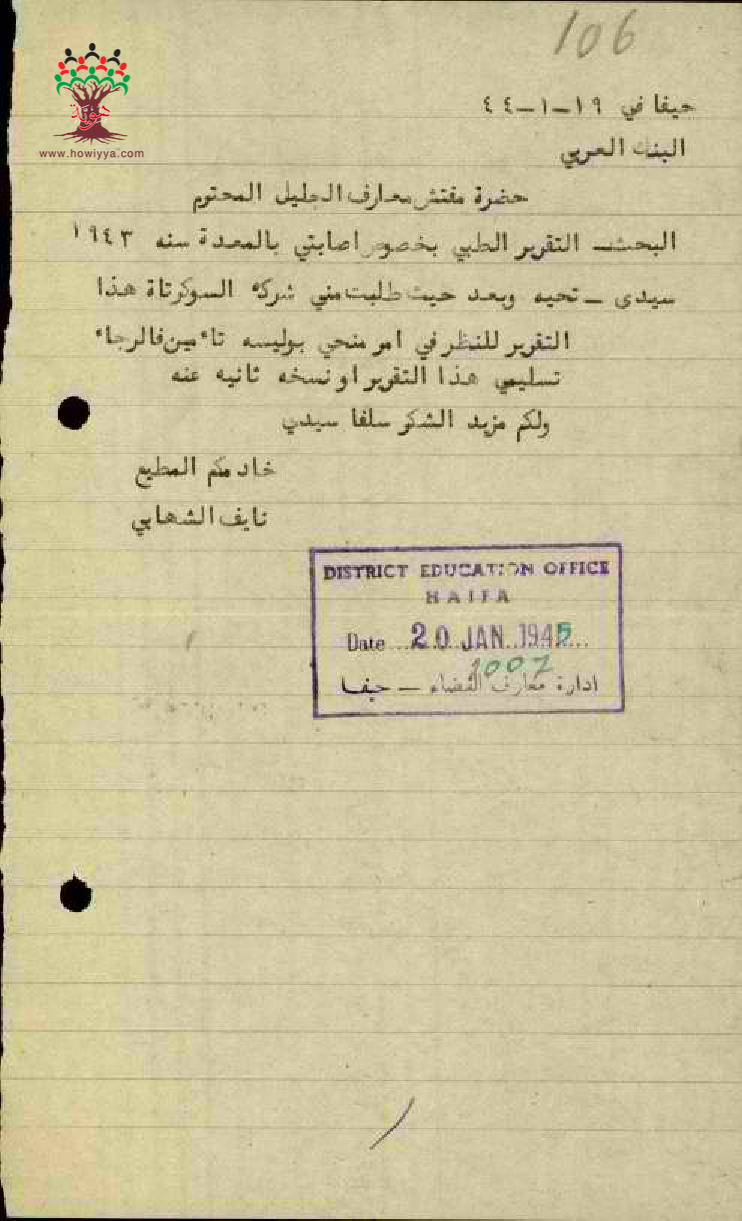 106
www.howiyya.com
حيفا في ١٩-١-٤٤
البنك العربي
حضرة مفتش معارف الجليل المحتوم
البحث ـ التقرير الطبي بخصوص اصابتي بالمعدة سنه ١٩٤٣
سيدى ـ تحيه وبعد حيث طلبت مني شركه السوكرتاة هذا
التقرير للنظر في امر منحي بوليسه تاءمين فالرجاء
تسليمي هذا التقرير او نسخه ثانيه عنه
ولكم مزيد الشكر سلفا سيدي
خادمكم المطيع
نايف الشهابي
DISTRICT EDUCATION OFFICE
HAIFA
Date 20 JAN. 1945
1007
ادارة معارف القضاء ـ حيفا